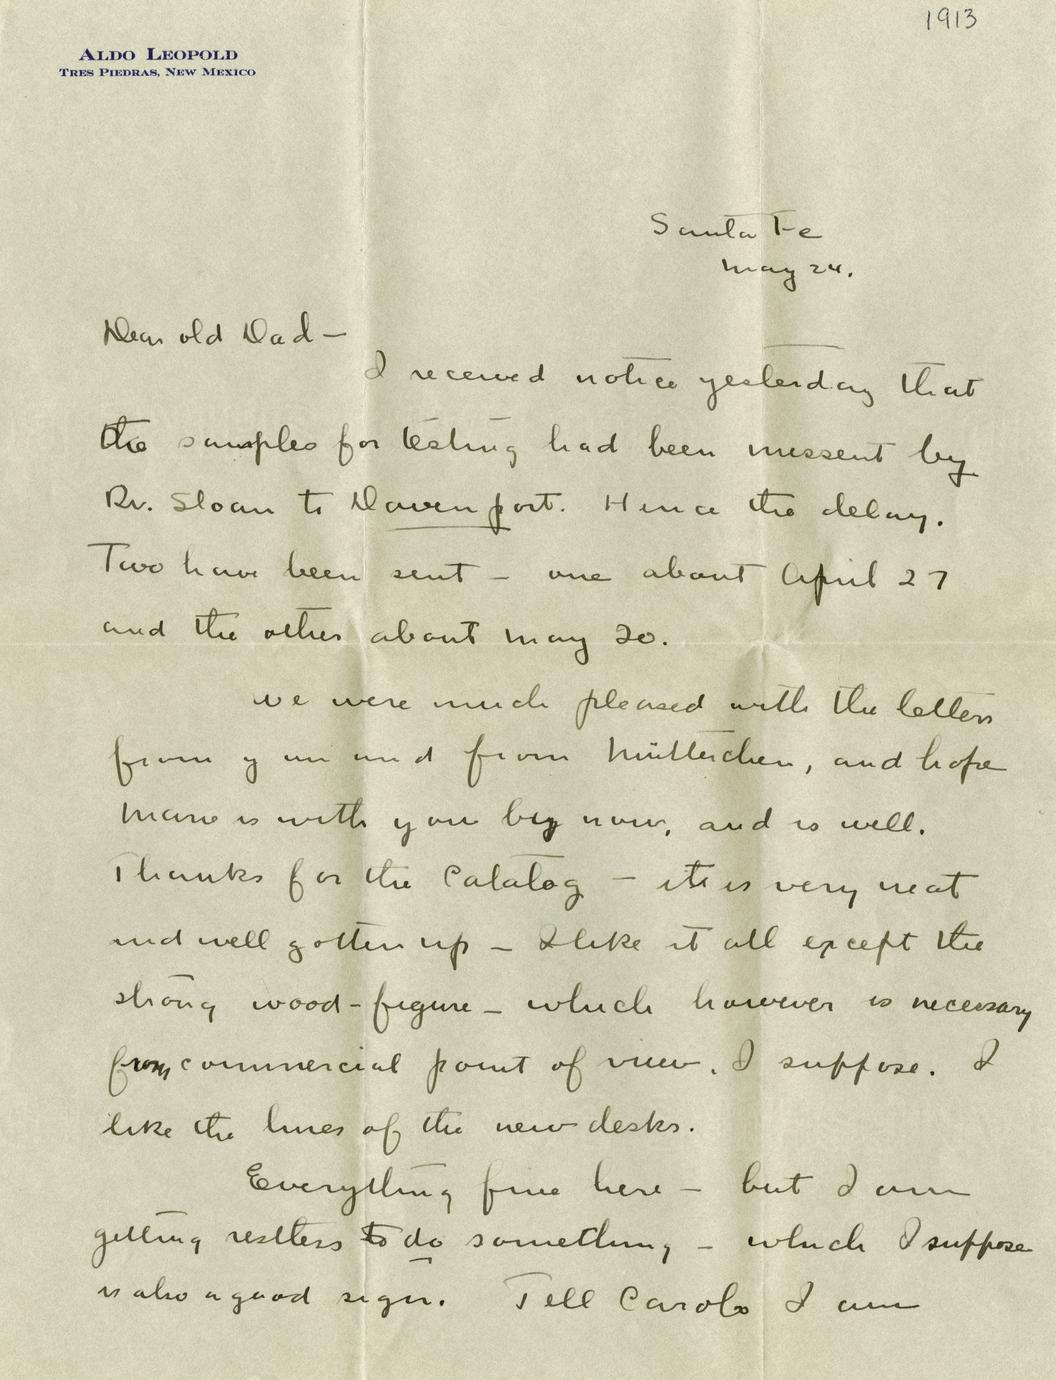 1913
ALDO LEOPOLD
TRES PIEDRAS, NEW MEXICO
Santa Fe
May 24.
Dear old Dad —
I received notice yesterday that
the samples for testing had been missent by
Dr. Sloan to Davenport. Hence the delay.
Two have been sent — one about April 27
and the other about May 20.
We were much pleased with the letters
from you and from Mütterchen, and hope
Marie is with you by now, and is well.
Thanks for the Catalog — it is very neat
and well gotten up — I like it all except the
strong wood-figure — which however is necessary
from commercial point of view, I suppose. I
like the lines of the new desks.
Everything fine here — but I am
getting restless to do something — which I suppose
is also a good sign. Tell Carolo I am